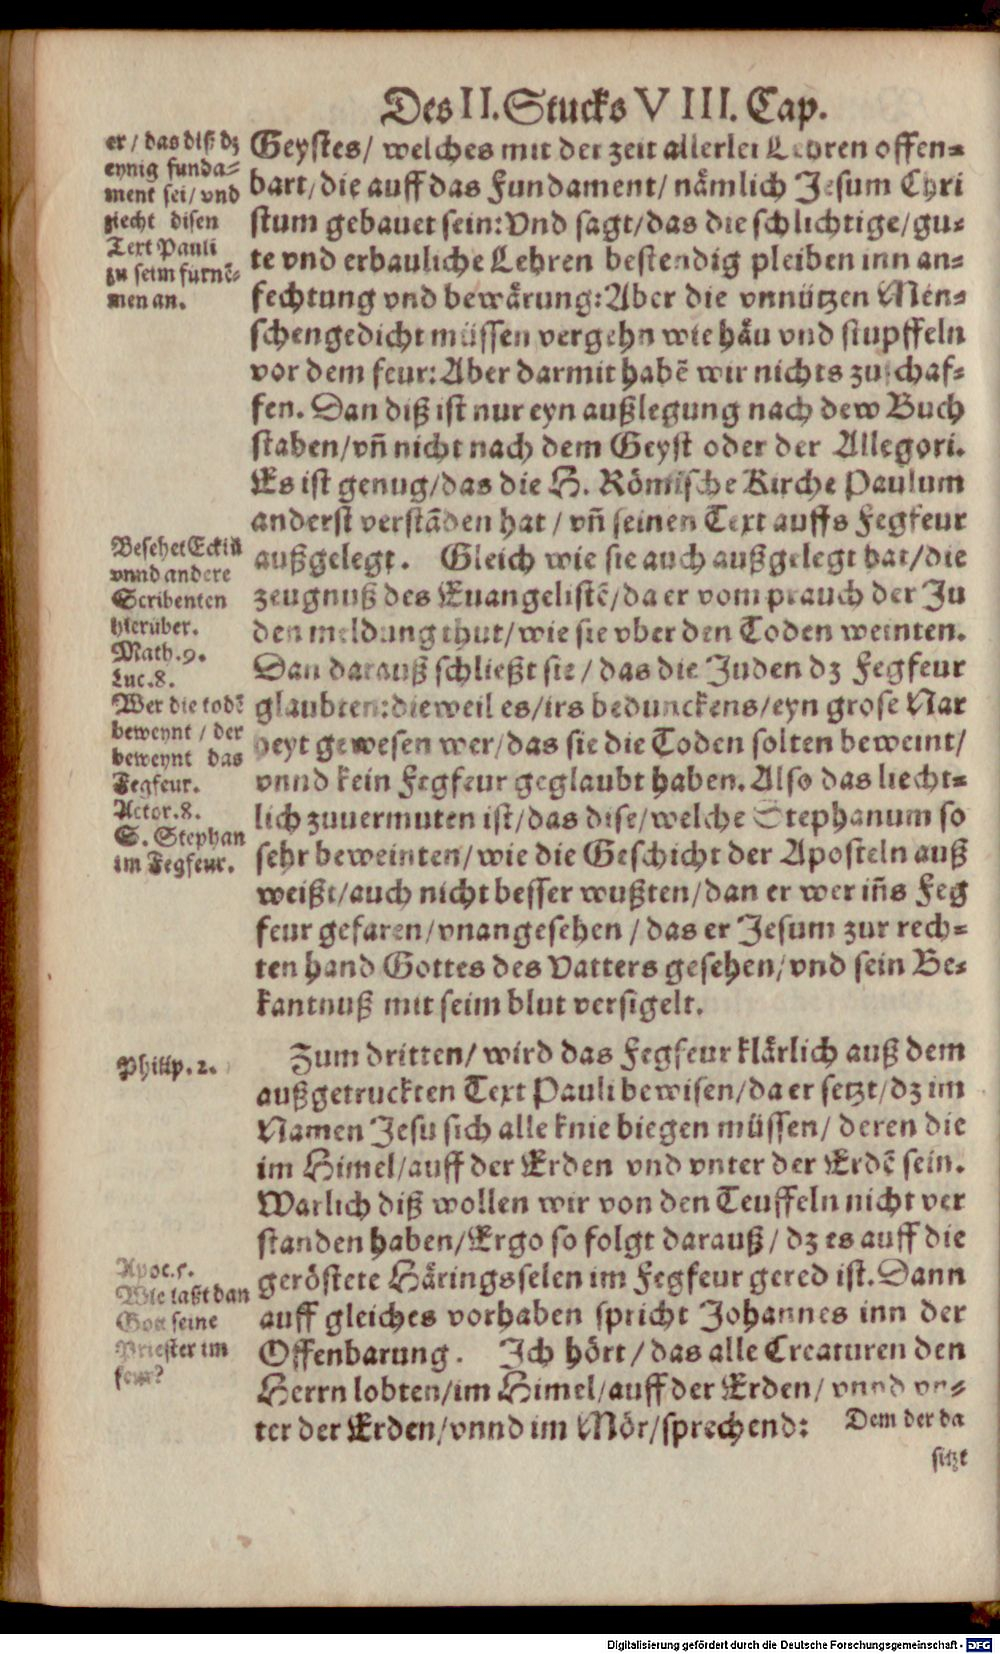 Des II. Stucks VIII. Cap.
er / das diß dz
eynig funda-
ment sei / vnd
ziecht disen
Text Pauli
zu seim fürnē-
men an.
Geystes / welches mit der zeit allerlei Lehren offen-
bart / die auff das Fundament / nämlich Jesum Chri
stum gebauet sein: Vnd sagt / das die schlichtige / gu-
te vnd erbauliche Lehren bestendig pleiben inn an-
fechtung vnd bewärung: Aber die vnnützen Men-
schengedicht müssen vergehn wie häu vnd stupffeln
vor dem feur: Aber darmit habē wir nichts zuschaf-
fen. Dan diß ist nur eyn außlegung nach dew Buch
staben / vn̄ nicht nach dem Geyst oder der Allegori.
Es ist genug / das die H. Römische Kirche Paulum
anderst verstāden hat / vn̄ seinen Text auffs Fegfeur
außgelegt. Gleich wie sie auch außgelegt hat / die
zeugnuß des Euangelistē / da er vom prauch der Ju
den meldung thut / wie sie vber den Toden weinten.
Dan darauß schließt sie / das die Juden dz Fegfeur
glaubten: dieweil es / irs bedunckens / eyn grose Nar
heyt gewesen wer / das sie die Toden solten beweint /
vnnd kein Fegfeur geglaubt haben. Also das liecht-
lich zuuermuten ist / das dise / welche Stephanum so
sehr beweinten / wie die Geschicht der Aposteln auß
weißt / auch nicht besser wußten / dan er wer in̄s Feg
feur gefaren / vnangesehen / das er Jesum zur rech-
ten hand Gottes des Vatters gesehen / vnd sein Be-
kantnuß mit seim blut versigelt.
Besehet Eckiū
vnnd andere
Scribenten
hierüber.
Math. 9.
Luc. 8.
Wer die todē
beweynt / der
beweynt das
Fegfeur.
Actor. 8.
S. Stephan
im Fegfeur.
Philip. 2.
Zum dritten / wird das Fegfeur klärlich auß dem
außgetruckten Text Pauli bewisen / da er setzt / dz im
Namen Jesu sich alle knie biegen müssen / deren die
im Himel / auff der Erden vnd vnter der Erdē sein.
Warlich diß wollen wir von den Teuffeln nicht ver
standen haben / Ergo so folgt darauß / dz es auff die
geröstete Häringsselen im Fegfeur gered ist. Dann
auff gleiches vorhaben spricht Johannes inn der
Offenbarung. Ich hört / das alle Creaturen den
Herrn lobten / im Himel / auff der Erden / vnnd vn-
ter der Erden / vnnd im Mör / sprechend: Dem der da
Apoc. 5.
Wie laßt dan
Gott seine
Priester im
feur?
sitzt
Digitalisierung gefördert durch die Deutsche Forschungsgemeinschaft - DFG